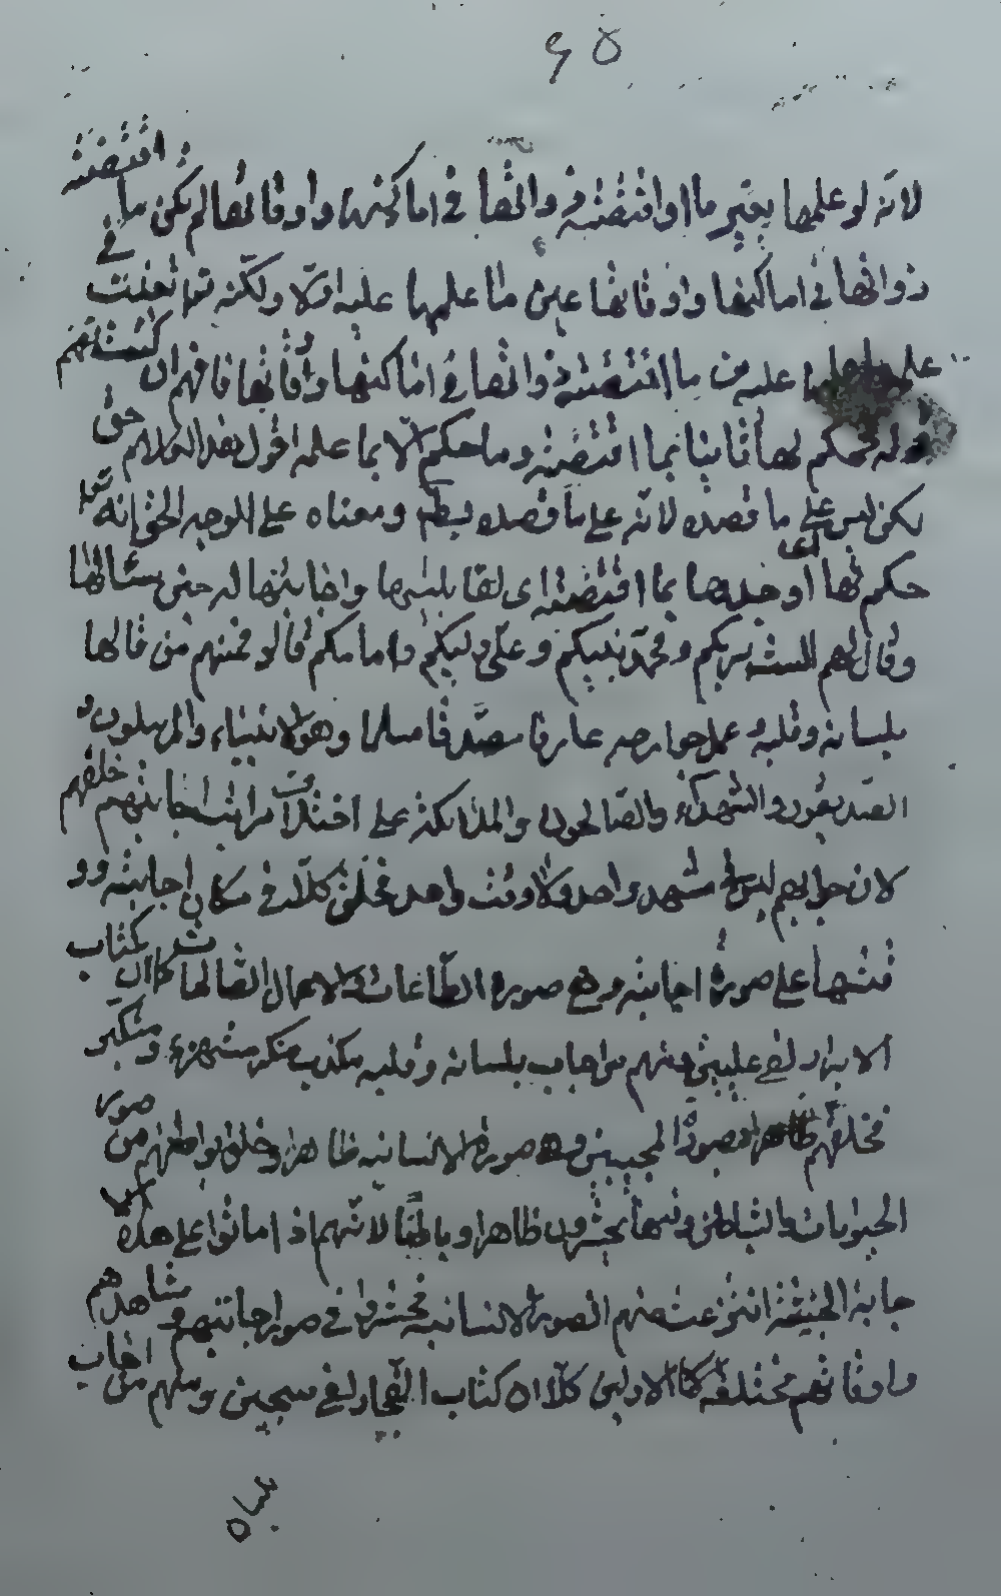 ٤٥
لانه لو علمها بغير ما اقتضته ذواتها في اماكنها واوقاتها لم يكن ما اقتضته
ذواتها في اماكنها واوقاتها عين ما علمها عليه اولا ولكنه تعالى في
عليه من ما اقتضته ذواتها في اماكنها واوقاتها فافهم ان
فحكم لها ثانيا بما اقتضته وما حكم الا بما علمه اقول هذا الكلام حق
لكن ليس على ما قصده لانه على ما قصده باطل ومعناه على الوجه الحق انه تعالى
حكم لها اى اوجدها بما اقتضته اى لقابليتها واجابتها له حين سئالها
وقال لهم الست بربكم ومحمد نبيكم وعلى وليكم وامامكم قالوا فمنهم من قالها
بلسانه وقلبه وعمل جوارحه عارفا مصدقا مسلما وهو الانبياء والمرسلون و
الصديقون والشهداء والصالحون والملائكة على اختلاف مراتب اجابتهم خلقهم
لان جوابهم ليس في مشهد واحد ولا وقت واحد فخلق كلا في مكان اجابته وو
قتها على صورة اجابته وهي صورة الطاعات والاعمال الصالحا كلا ان كتاب
الابرار لفى عليين ومنهم من اجاب بلسانه وقلبه مكذب منكر مستهزء ومتكبر
فخلقهم ظاهرا بصورة المجيبين وهو صورة الانسانيه ظاهرا وخلق بواطنهم من صور
الحيوانات والشياطين وفيها يحشرون ظاهرا وباطنا لانهم اذا ماتوا على هذه الا
جابة الخبيثة انتزعت منهم الصورة الانسانية فحشروا في صور اجابتهم ومشاهدهم
واوقاتهم مختلفة كما الاولين كلا ان كتاب الفجار لفى سجين ومنهم من اجاب
بلسانه